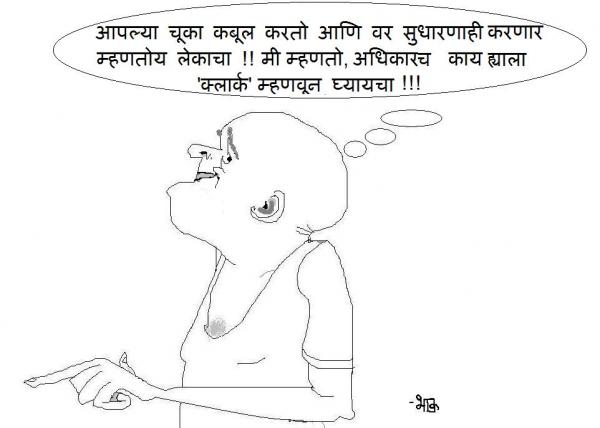 आपल्या चूका कबूल करतो आणि वर सुधारणाही करणार
म्हणतोय लेकाचा !! मी म्हणतो, अधिकारच काय ह्याला
'क्लार्क' म्हणवून घ्यायचा !!!